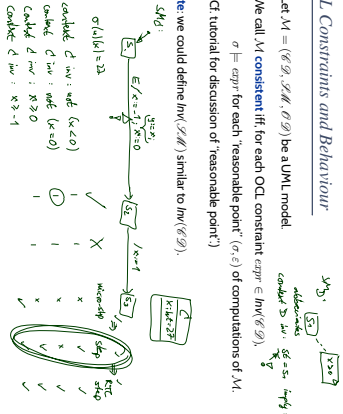 L Constraints and Behaviour
Let M = (CD, SM, OD) be a UML model.
We call M consistent iff, for each OCL constraint expr ∈ Inv(CD),
σ ⊨ expr for each "reasonable point" (σ, ε) of computations of M.
Cf. tutorial for discussion of "reasonable point".)
te: we could define Inv(SM) similar to Inv(CD).
SM_D:
S0
x>0
abbreviates
context D inv: st = S0 implies
SM_C:
S1
E/x:=-1; x:=0
S2
/x:=1
S3
C
x:Int=27
σ(u)(x)=27
micro-step
step
RTC step
context C inv: not (x<0)
context C inv: not (x=0)
context C inv: x≥0
context C inv: x≥-1